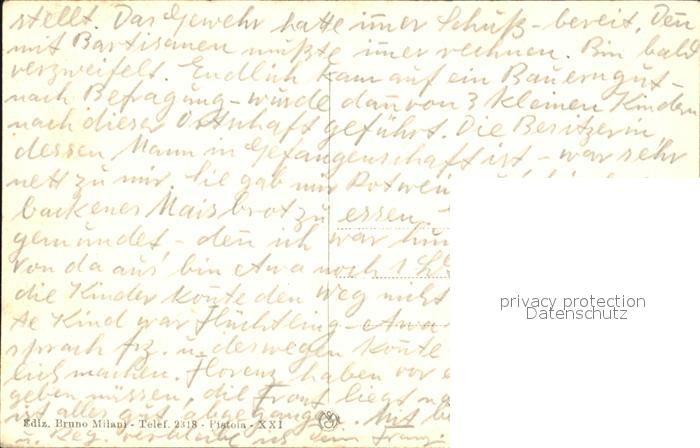 stellt. Das Gewehr hatte im̄er Schuß-bereit. Den̄
mit Bartisanen mußte im̄er rechnen. Bin bald
verzweifelt. Endlich kam auf ein Bauerngut -
nach Befragung - wurde dan̄ von 3 kleinen Kindern
nach dieser Ortschaft geführt. Die Besitzerin,
dessen Mann in Gefangenschaft ist - war sehr
nett zu mir. Sie gab mir Rotwein
backenes Maisbrot zu essen.
gemundet - den̄ ich war hun
von da aus bin etwa noch 1
die Kinder kon̄te den Weg nicht
te Kind war Flüchtling - etwa
sprach frz. u. deswegen kon̄te
lich machen. Florenz haben vor
geben müssen, die Front liegt
ist alles gut abgegangen. Mit
Ediz. Bruno Milani - Telef. 2318 - Pistoia - XXI
privacy protection
Datenschutz